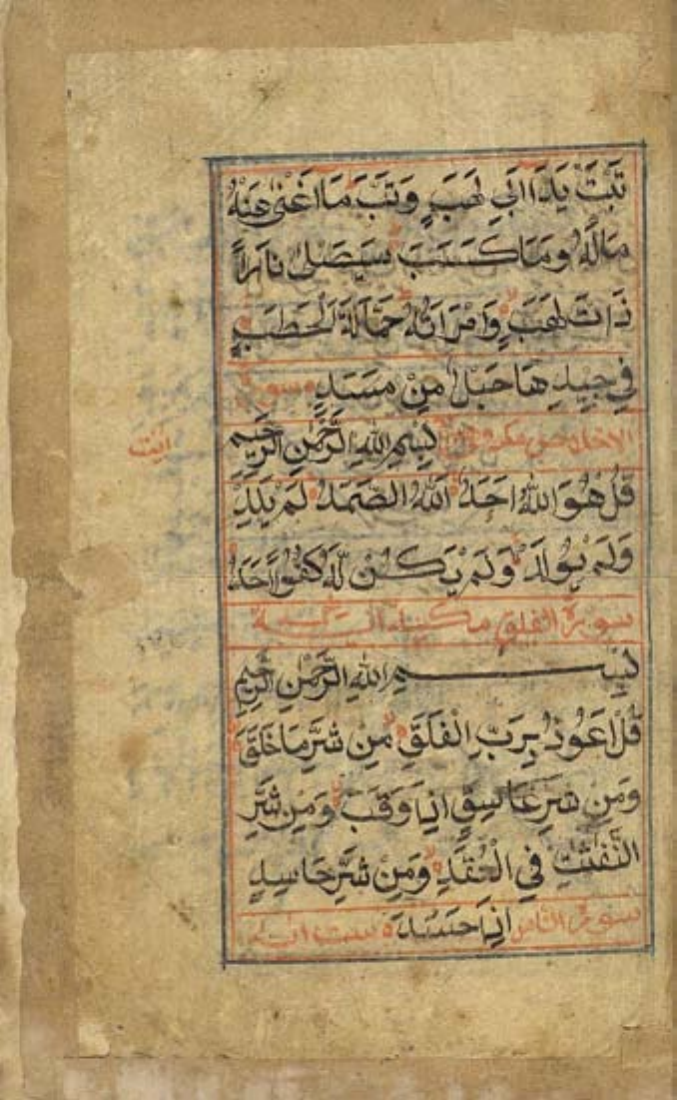 تَبَّتْ يَدَا اَبِي لَهَبٍ وَتَبَّ مَا اَغْنٰى عَنْهُ
مَالُهُ وَمَا كَسَبَ سَيَصْلٰى نَارًا
ذَاتَ لَهَبٍ وَامْرَاَتُهُ حَمَّالَةَ الْحَطَبِ
فِي جِيدِهَا حَبْلٌ مِنْ مَسَدٍ سورة
الاخلاص مكية بِسْمِ اللّٰهِ الرَّحْمٰنِ الرَّحِيمِ
قُلْ هُوَ اللّٰهُ اَحَدٌ اَللّٰهُ الصَّمَدُ لَمْ يَلِدْ
وَلَمْ يُولَدْ وَلَمْ يَكُنْ لَهُ كُفُوًا اَحَدٌ
سورة الفلق مكية
بِسْمِ اللّٰهِ الرَّحْمٰنِ الرَّحِيمِ
قُلْ اَعُوذُ بِرَبِّ الْفَلَقِ مِنْ شَرِّ مَا خَلَقَ
وَمِنْ شَرِّ غَاسِقٍ اِذَا وَقَبَ وَمِنْ شَرِّ
النَّفّٰثٰتِ فِي الْعُقَدِ وَمِنْ شَرِّ حَاسِدٍ
سورة الناس اِذَا حَسَدَ